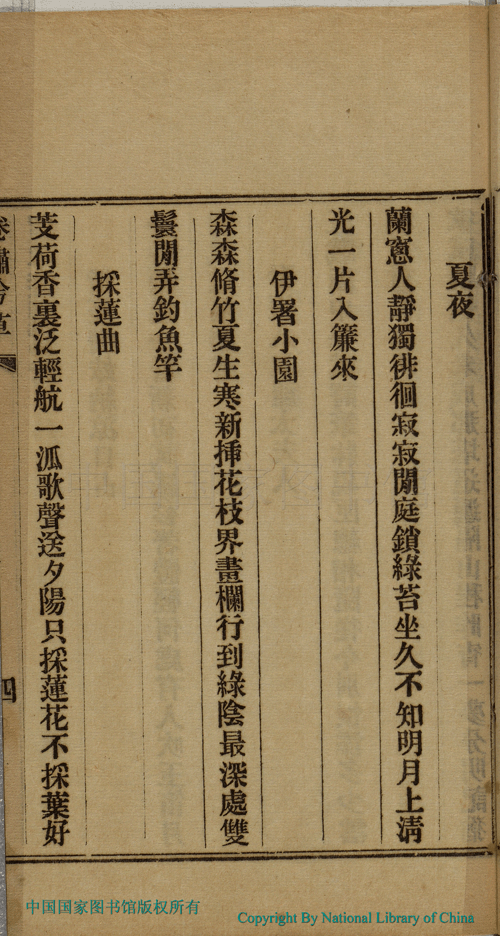 夏夜
蘭窻人靜獨徘徊寂寂閒庭鎖綠苔坐久不知明月上淸
光一片入簾來
伊署小園
森森脩竹夏生寒新揷花枝界畫欄行到綠陰最深處雙
鬟閒弄釣魚竿
採蓮曲
芰荷香裏泛輕航一泒歌聲送夕陽只採蓮花不採葉好
吟草
四
中国国家图书馆版权所有
Copyright By National Library of China